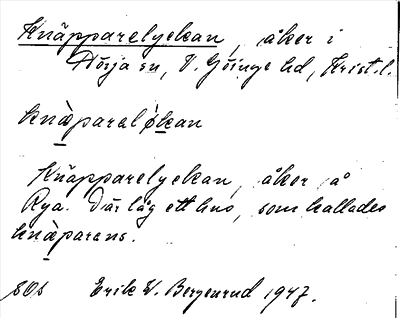 Knäpparelyckan, åker i
Nörja sn, V. Göinge hd, Krist.l.
knäparaløkan
Knäpparelyckan, åker å
Rya. Där låg ett hus, som kallades
knäparens.
SOS Erik W. Bergenrud 1947.